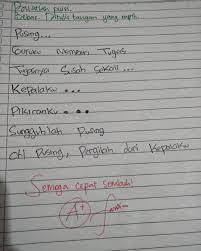 Buatlah puisi.
Bebas. Ditulis tangan yang rapih.
Pusing...
Guruku Memberi Tugas
Tugasnya Susah Sekali...
Kepalaku...
Pikiranku...
Sungguhlah Pusing
Oh Pusing, Pergilah dari Kepalaku
Semoga cepat sembuh!
A+